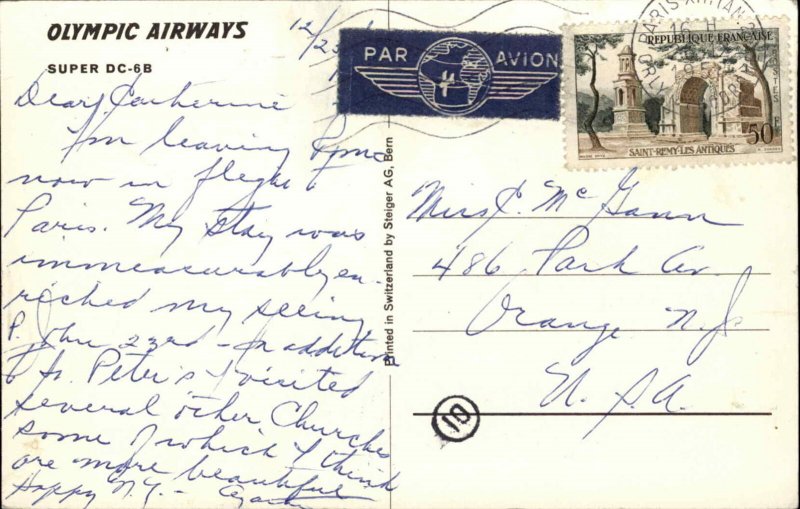 OLYMPIC AIRWAYS
SUPER DC-6B
12/23
Dear Catherine
I'm leaving Rome
now in flight to
Paris. My stay was
immeasurably en-
riched my seeing
P. John 23rd - In addition
to St. Peter's I visited
several other Churches
some of which I think
are more beautiful
Happy N.Y. -
Printed in Switzerland by Steiger AG, Bern
PAR AVION
PARIS
ORLY
REPUBLIQUE FRANÇAISE
POSTES
50F
SAINT-REMY-LES ANTIQUES
Miss C. McGann
486 Park Av.
Orange N.J.
U.S.A.
10